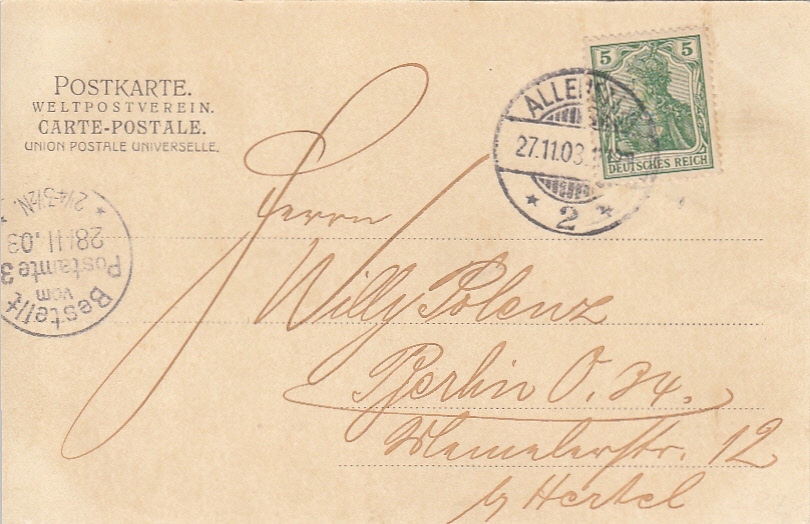 POSTKARTE.
WELTPOSTVEREIN.
CARTE-POSTALE.
UNION POSTALE UNIVERSELLE.
5 5
DEUTSCHES REICH
27.11.03.
* 2 *
Bestellt
vom
Postamte 3
28.11.03
* 2¼-3½N. *
Herrn
Willy Polenz
Berlin O. 34.
Memelerstr. 12
b/ Hertel